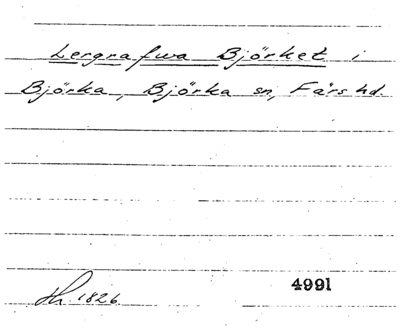 Lergrafwa Björket i
Björka, Björka sn, Färs hd.
Hr. 1826
4991